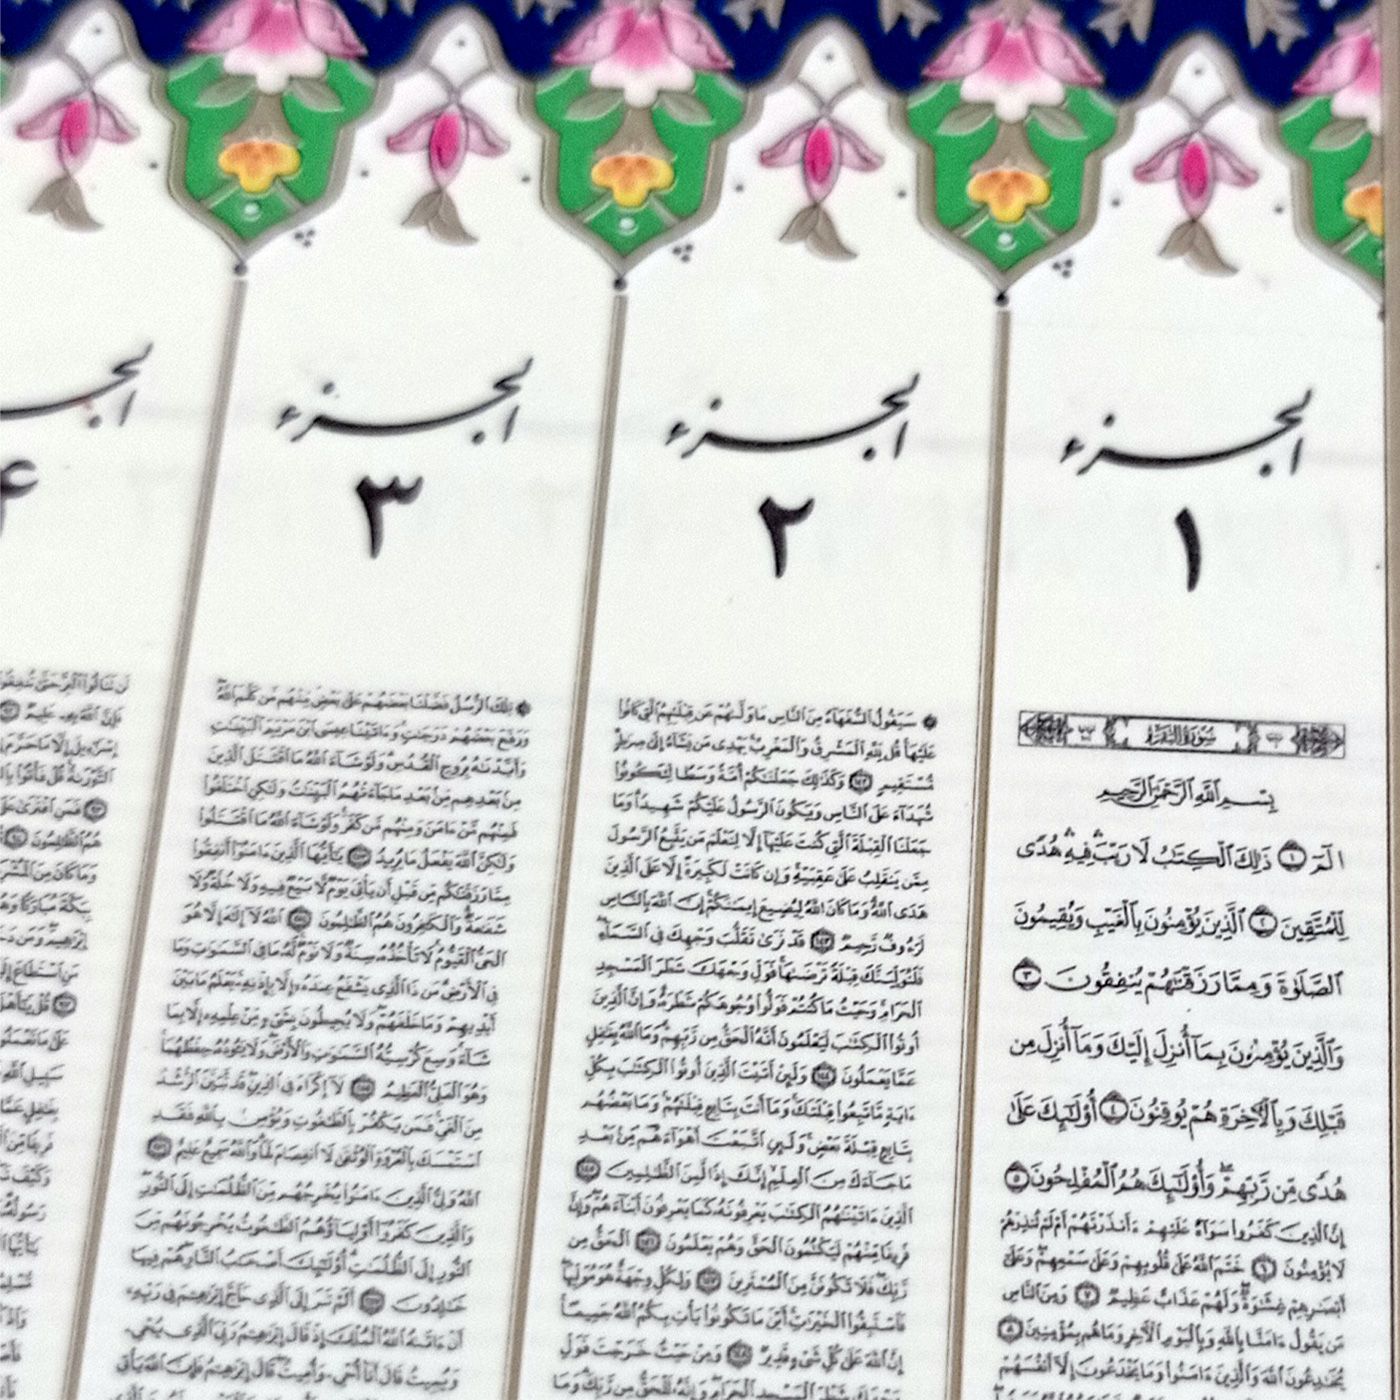 الجزء
١
سُورَةُ البَقَرَة
بِسْمِ اللَّهِ الرَّحْمَٰنِ الرَّحِيمِ
الٓمٓ ١ ذَٰلِكَ الْكِتَٰبُ لَا رَيْبَ ۛ فِيهِ ۛ هُدًى
لِّلْمُتَّقِينَ ٢ الَّذِينَ يُؤْمِنُونَ بِالْغَيْبِ وَيُقِيمُونَ
الصَّلَوٰةَ وَمِمَّا رَزَقْنَٰهُمْ يُنفِقُونَ ٣
وَالَّذِينَ يُؤْمِنُونَ بِمَآ أُنزِلَ إِلَيْكَ وَمَآ أُنزِلَ مِن
قَبْلِكَ وَبِالْآخِرَةِ هُمْ يُوقِنُونَ ٤ أُو۟لَٰٓئِكَ عَلَىٰ
هُدًى مِّن رَّبِّهِمْ ۖ وَأُو۟لَٰٓئِكَ هُمُ الْمُفْلِحُونَ ٥
إِنَّ الَّذِينَ كَفَرُوا سَوَآءٌ عَلَيْهِمْ ءَأَنذَرْتَهُمْ أَمْ لَمْ تُنذِرْهُمْ
لَا يُؤْمِنُونَ ٦ خَتَمَ اللَّهُ عَلَىٰ قُلُوبِهِمْ وَعَلَىٰ سَمْعِهِمْ ۖ وَعَلَىٰٓ
أَبْصَٰرِهِمْ غِشَٰوَةٌ ۖ وَلَهُمْ عَذَابٌ عَظِيمٌ ٧ وَمِنَ النَّاسِ
مَن يَقُولُ ءَامَنَّا بِاللَّهِ وَبِالْيَوْمِ الْآخِرِ وَمَا هُم بِمُؤْمِنِينَ ٨
يُخَٰدِعُونَ اللَّهَ وَالَّذِينَ ءَامَنُوا وَمَا يَخْدَعُونَ إِلَّآ أَنفُسَهُمْ
الجزء
٢
سَيَقُولُ السُّفَهَآءُ مِنَ النَّاسِ مَا وَلَّىٰهُمْ عَن قِبْلَتِهِمُ الَّتِي كَانُوا
عَلَيْهَا ۚ قُل لِّلَّهِ الْمَشْرِقُ وَالْمَغْرِبُ ۚ يَهْدِي مَن يَشَآءُ إِلَىٰ صِرَٰطٍ
مُّسْتَقِيمٍ ١٤٢ وَكَذَٰلِكَ جَعَلْنَٰكُمْ أُمَّةً وَسَطًا لِّتَكُونُوا
شُهَدَآءَ عَلَى النَّاسِ وَيَكُونَ الرَّسُولُ عَلَيْكُمْ شَهِيدًا ۗ وَمَا
جَعَلْنَا الْقِبْلَةَ الَّتِي كُنتَ عَلَيْهَآ إِلَّا لِنَعْلَمَ مَن يَتَّبِعُ الرَّسُولَ
مِمَّن يَنقَلِبُ عَلَىٰ عَقِبَيْهِ ۚ وَإِن كَانَتْ لَكَبِيرَةً إِلَّا عَلَى الَّذِينَ
هَدَى اللَّهُ ۗ وَمَا كَانَ اللَّهُ لِيُضِيعَ إِيمَٰنَكُمْ ۚ إِنَّ اللَّهَ بِالنَّاسِ
لَرَءُوفٌ رَّحِيمٌ ١٤٣ قَدْ نَرَىٰ تَقَلُّبَ وَجْهِكَ فِي السَّمَآءِ ۖ
فَلَنُوَلِّيَنَّكَ قِبْلَةً تَرْضَىٰهَا ۚ فَوَلِّ وَجْهَكَ شَطْرَ الْمَسْجِدِ
الْحَرَامِ ۚ وَحَيْثُ مَا كُنتُمْ فَوَلُّوا وُجُوهَكُمْ شَطْرَهُ ۗ وَإِنَّ الَّذِينَ
أُوتُوا الْكِتَٰبَ لَيَعْلَمُونَ أَنَّهُ الْحَقُّ مِن رَّبِّهِمْ ۗ وَمَا اللَّهُ بِغَٰفِلٍ
عَمَّا يَعْمَلُونَ ١٤٤ وَلَئِنْ أَتَيْتَ الَّذِينَ أُوتُوا الْكِتَٰبَ بِكُلِّ
ءَايَةٍ مَّا تَبِعُوا قِبْلَتَكَ ۚ وَمَآ أَنتَ بِتَابِعٍ قِبْلَتَهُمْ ۚ وَمَا بَعْضُهُم
بِتَابِعٍ قِبْلَةَ بَعْضٍ ۚ وَلَئِنِ اتَّبَعْتَ أَهْوَآءَهُم مِّن بَعْدِ
مَا جَآءَكَ مِنَ الْعِلْمِ ۙ إِنَّكَ إِذًا لَّمِنَ الظَّٰلِمِينَ ١٤٥
الَّذِينَ ءَاتَيْنَٰهُمُ الْكِتَٰبَ يَعْرِفُونَهُ كَمَا يَعْرِفُونَ أَبْنَآءَهُمْ ۖ وَإِنَّ
فَرِيقًا مِّنْهُمْ لَيَكْتُمُونَ الْحَقَّ وَهُمْ يَعْلَمُونَ ١٤٦ الْحَقُّ مِن
رَّبِّكَ ۖ فَلَا تَكُونَنَّ مِنَ الْمُمْتَرِينَ ١٤٧ وَلِكُلٍّ وِجْهَةٌ هُوَ مُوَلِّيهَا ۖ
فَاسْتَبِقُوا الْخَيْرَٰتِ ۚ أَيْنَ مَا تَكُونُوا يَأْتِ بِكُمُ اللَّهُ جَمِيعًا ۚ
إِنَّ اللَّهَ عَلَىٰ كُلِّ شَيْءٍ قَدِيرٌ ١٤٨ وَمِنْ حَيْثُ خَرَجْتَ فَوَلِّ
وَجْهَكَ شَطْرَ الْمَسْجِدِ الْحَرَامِ ۖ وَإِنَّهُ لَلْحَقُّ مِن رَّبِّكَ ۗ وَمَا
الجزء
٣
تِلْكَ الرُّسُلُ فَضَّلْنَا بَعْضَهُمْ عَلَىٰ بَعْضٍ ۘ مِّنْهُم مَّن كَلَّمَ اللَّهُ ۖ
وَرَفَعَ بَعْضَهُمْ دَرَجَٰتٍ ۚ وَءَاتَيْنَا عِيسَى ابْنَ مَرْيَمَ الْبَيِّنَٰتِ
وَأَيَّدْنَٰهُ بِرُوحِ الْقُدُسِ ۗ وَلَوْ شَآءَ اللَّهُ مَا اقْتَتَلَ الَّذِينَ
مِن بَعْدِهِم مِّن بَعْدِ مَا جَآءَتْهُمُ الْبَيِّنَٰتُ وَلَٰكِنِ اخْتَلَفُوا
فَمِنْهُم مَّنْ ءَامَنَ وَمِنْهُم مَّن كَفَرَ ۚ وَلَوْ شَآءَ اللَّهُ مَا اقْتَتَلُوا
وَلَٰكِنَّ اللَّهَ يَفْعَلُ مَا يُرِيدُ ٢٥٣ يَٰٓأَيُّهَا الَّذِينَ ءَامَنُوٓا أَنفِقُوا
مِمَّا رَزَقْنَٰكُم مِّن قَبْلِ أَن يَأْتِيَ يَوْمٌ لَّا بَيْعٌ فِيهِ وَلَا خُلَّةٌ وَلَا
شَفَٰعَةٌ ۗ وَالْكَٰفِرُونَ هُمُ الظَّٰلِمُونَ ٢٥٤ اللَّهُ لَآ إِلَٰهَ إِلَّا هُوَ
الْحَيُّ الْقَيُّومُ ۚ لَا تَأْخُذُهُ سِنَةٌ وَلَا نَوْمٌ ۚ لَّهُ مَا فِي السَّمَٰوَٰتِ وَمَا
فِي الْأَرْضِ ۗ مَن ذَا الَّذِي يَشْفَعُ عِندَهُ إِلَّا بِإِذْنِهِ ۚ يَعْلَمُ مَا بَيْنَ
أَيْدِيهِمْ وَمَا خَلْفَهُمْ ۖ وَلَا يُحِيطُونَ بِشَيْءٍ مِّنْ عِلْمِهِ إِلَّا بِمَا
شَآءَ ۚ وَسِعَ كُرْسِيُّهُ السَّمَٰوَٰتِ وَالْأَرْضَ ۖ وَلَا يَـُٔودُهُ حِفْظُهُمَا ۚ
وَهُوَ الْعَلِيُّ الْعَظِيمُ ٢٥٥ لَآ إِكْرَاهَ فِي الدِّينِ ۖ قَد تَّبَيَّنَ الرُّشْدُ
مِنَ الْغَيِّ ۚ فَمَن يَكْفُرْ بِالطَّٰغُوتِ وَيُؤْمِن بِاللَّهِ فَقَدِ
اسْتَمْسَكَ بِالْعُرْوَةِ الْوُثْقَىٰ لَا انفِصَامَ لَهَا ۗ وَاللَّهُ سَمِيعٌ عَلِيمٌ ٢٥٦
اللَّهُ وَلِيُّ الَّذِينَ ءَامَنُوا يُخْرِجُهُم مِّنَ الظُّلُمَٰتِ إِلَى النُّورِ ۖ
وَالَّذِينَ كَفَرُوٓا أَوْلِيَآؤُهُمُ الطَّٰغُوتُ يُخْرِجُونَهُم مِّنَ
النُّورِ إِلَى الظُّلُمَٰتِ ۗ أُو۟لَٰٓئِكَ أَصْحَٰبُ النَّارِ ۖ هُمْ فِيهَا
خَٰلِدُونَ ٢٥٧ أَلَمْ تَرَ إِلَى الَّذِي حَآجَّ إِبْرَٰهِيمَ فِي رَبِّهِ
أَنْ ءَاتَىٰهُ اللَّهُ الْمُلْكَ إِذْ قَالَ إِبْرَٰهِيمُ رَبِّيَ الَّذِي يُحْيِي
وَيُمِيتُ قَالَ أَنَا أُحْيِي وَأُمِيتُ ۖ قَالَ إِبْرَٰهِيمُ فَإِنَّ اللَّهَ يَأْتِي